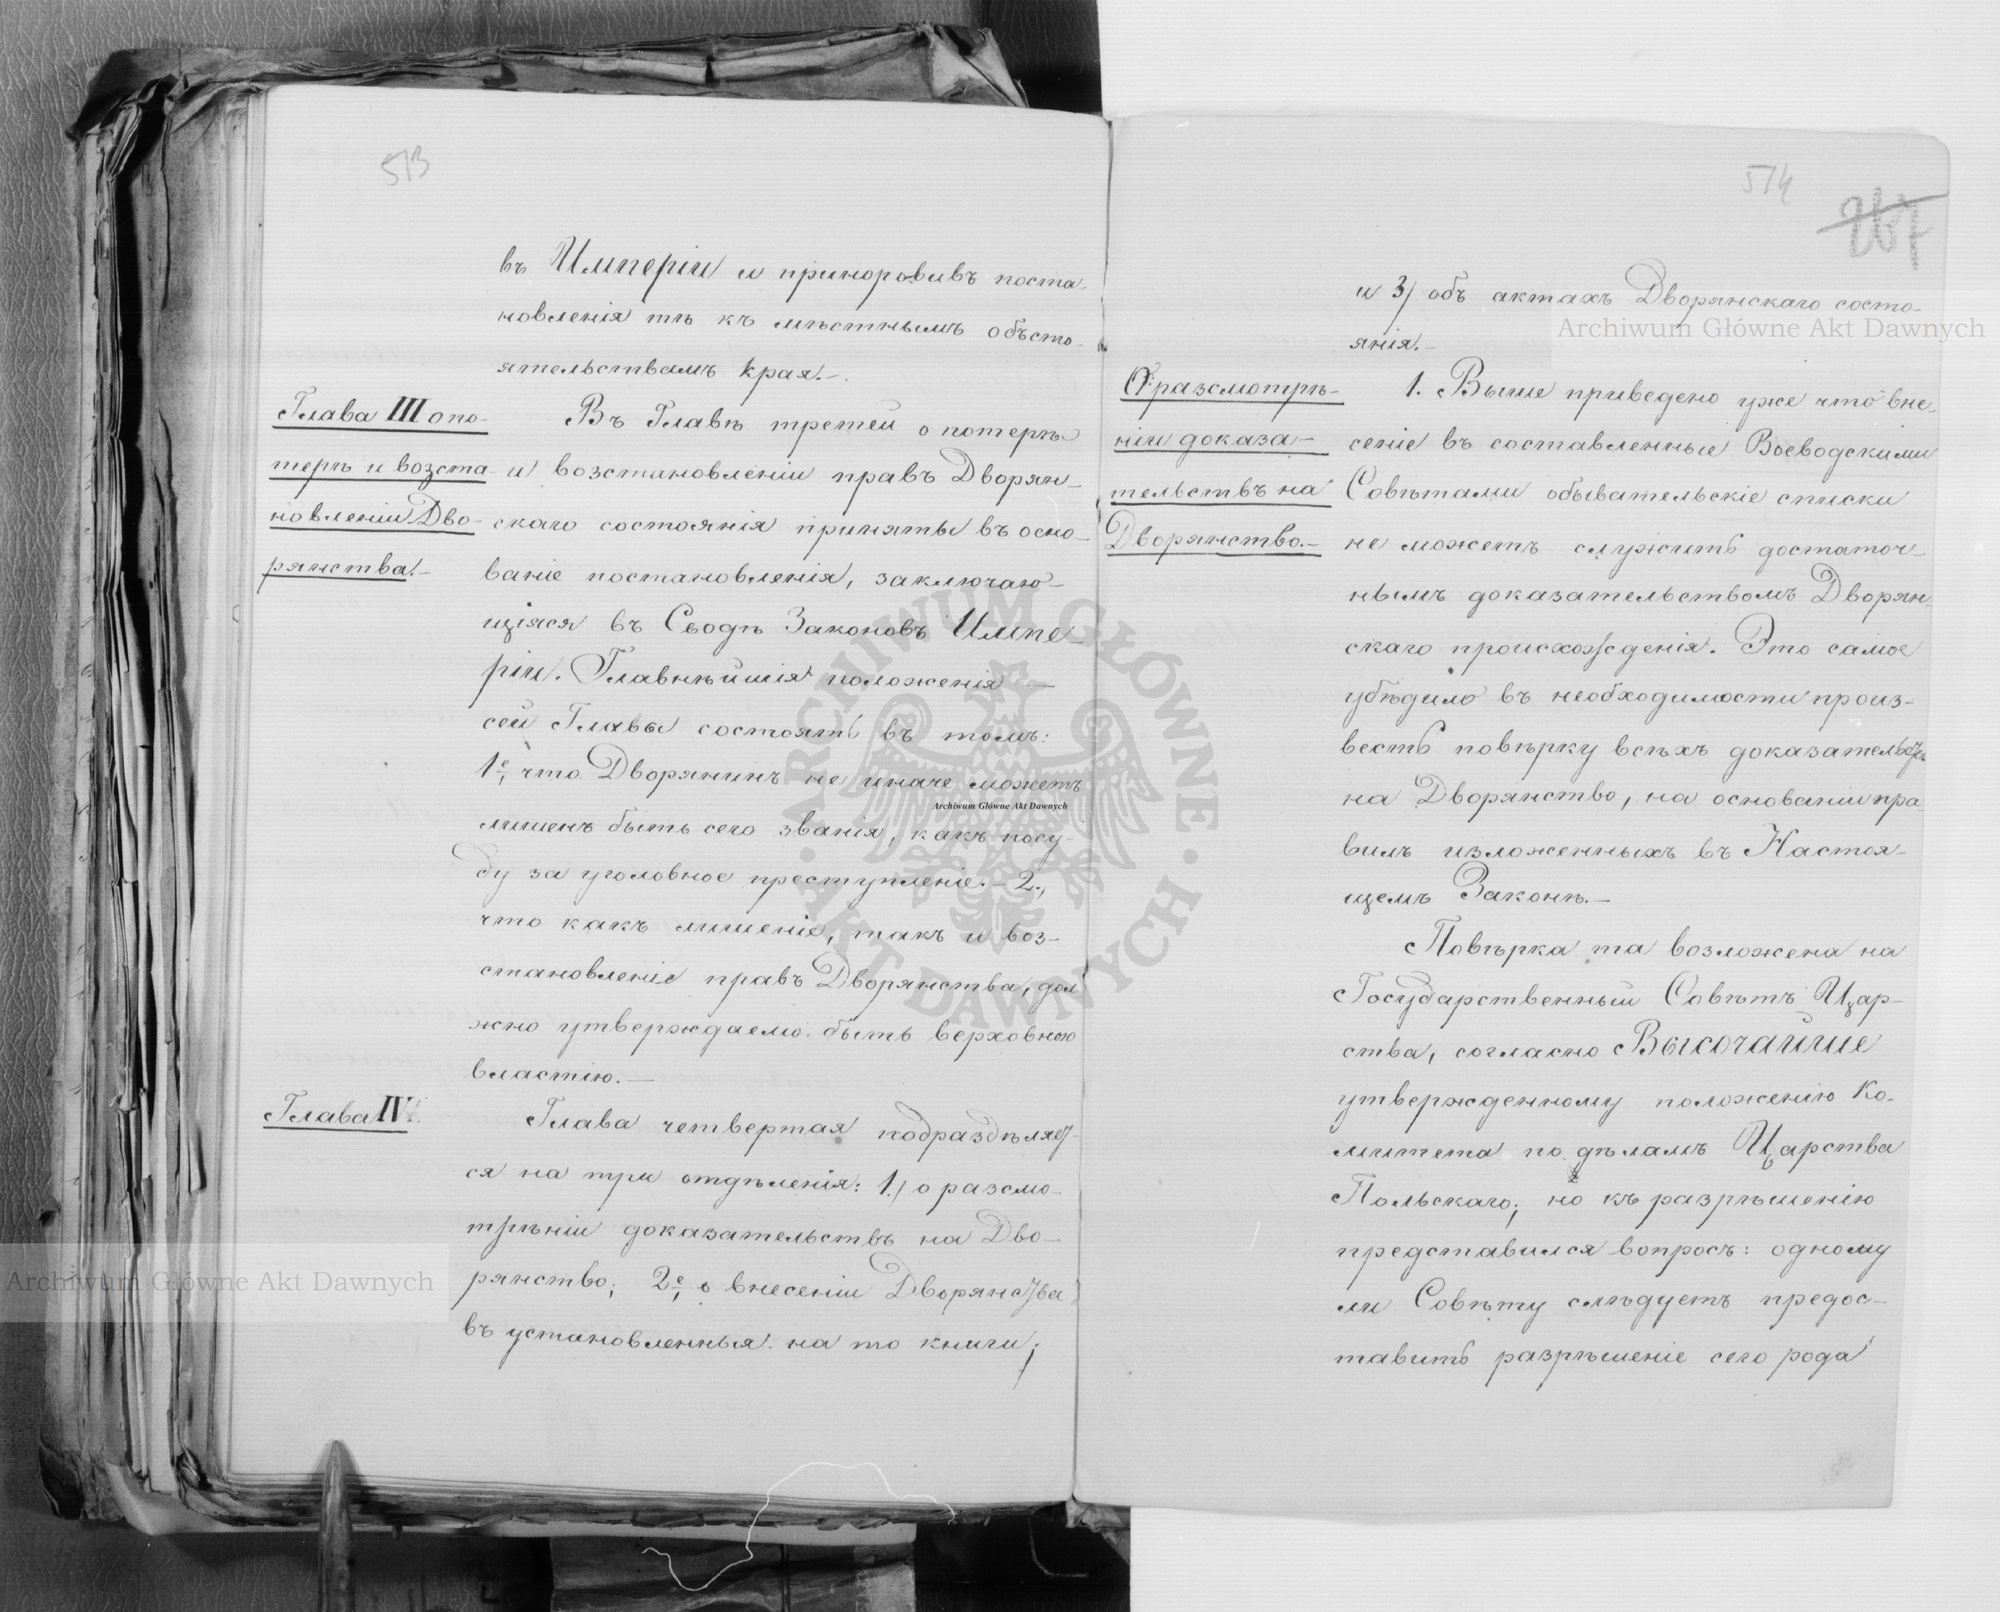 513
въ Имперіи и приноровивъ поста-
новленія тѣ къ мѣстнымъ обсто-
ятельствамъ края.-
Глава III о по-
терѣ и возста-
новленіи Дво-
рянства.-
Въ Главѣ третей о потерѣ
и возстановленіи правъ Дворян-
скаго состоянія приняты въ осно-
ваніе постановленія, заключаю-
щіяся въ Сводѣ Законовъ Импе-
ріи. Главнѣйшія положенія —
сей Главы состоятъ въ томъ:
1е, что Дворянинъ не иначе можетъ
лишенъ быть сего званія, какъ по су-
ду за уголовное преступленіе.- 2.,
что какъ лишеніе, такъ и воз-
становленіе правъ Дворянства, дол-
жно утверждаемо быть верховною
властію.—
Глава IV.
Глава четвертая подраздѣляет-
ся на три отдѣленія: 1./ о разсмо-
трѣніи доказательствъ на Дво-
рянство; 2е, о внесеніи Дворянства
въ установленныя на то книги;
514
267
и 3/ объ актахъ Дворянскаго состо-
янія.-
О разсмотрѣ-
ніи доказа-
тельствъ на
Дворянство.-
1. Выше приведено уже что вне-
сеніе въ составленные Воеводскими
Совѣтами обывательскіе списки
не можетъ служить достаточ-
нымъ доказательствомъ Дворян-
скаго происхожденія. Это самое
убѣдило въ необходимости произ-
весть повѣрку всѣхъ доказательствъ
на Дворянство, на основаніи пра-
вилъ изложенныхъ въ Настоя-
щемъ Законѣ.—
Повѣрка та возложена на
Государственный Совѣтъ Цар-
ства, согласно Высочайше
утвержденному положенію Ко-
митета по дѣламъ Царства
Польскаго; но къ разрѣшенію
представился вопросъ: одному
ли Совѣту слѣдуетъ предос-
тавить разрѣшеніе сего рода
Archiwum Główne Akt Dawnych
Archiwum Główne Akt Dawnych
Archiwum Główne Akt Dawnych
ARCHIWUM GŁÓWNE · AKT DAWNYCH ·